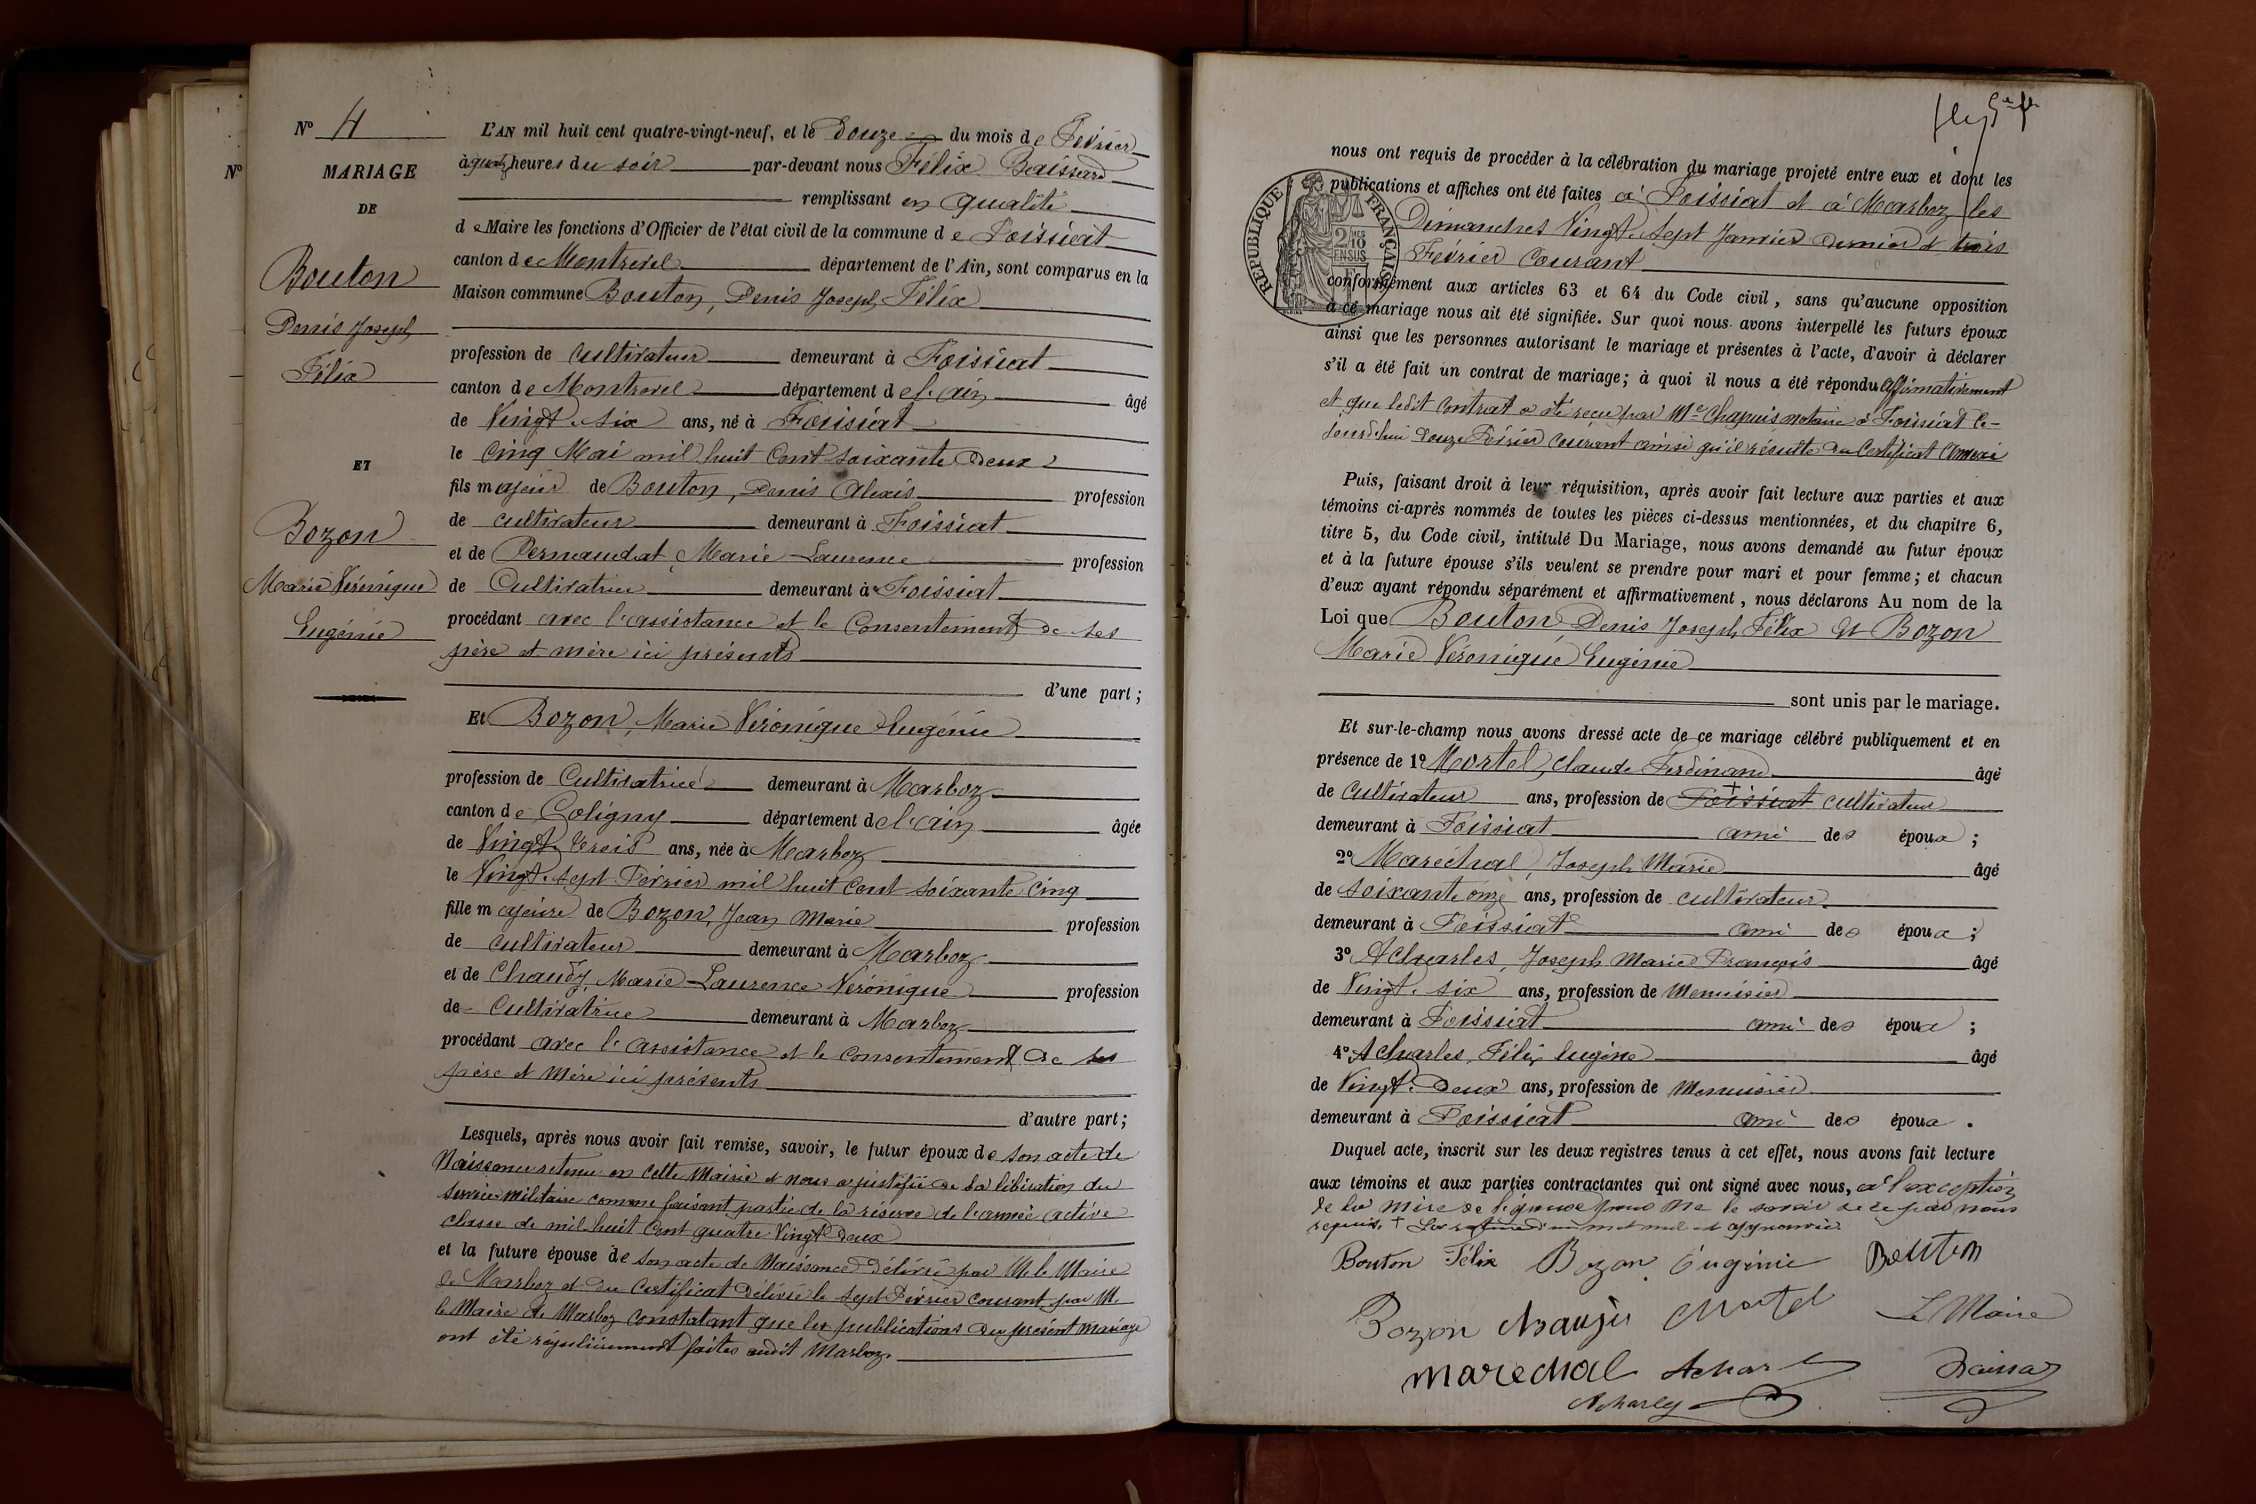 N° 4
N°
MARIAGE
DE
Bouton
Denis Joseph
Félix
ET
Bozon
Marie Véronique
Eugénie
L'AN mil huit cent quatre-vingt-neuf, et le Douze du mois de Février
à quatre heures du soir par-devant nous Félix Baissard
remplissant en qualité
de Maire les fonctions d'Officier de l'état civil de la commune de Foissiat
canton de Montrevel département de l'Ain, sont comparus en la
Maison commune Bouton, Denis Joseph Félix
profession de cultivateur demeurant à Foissiat
canton de Montrevel département de l'ain âgé
de Vingt-six ans, né à Foissiat
le cinq Mai mil huit Cent soixante Deux
fils majeur de Bouton, Denis Alexis profession
de cultivateur demeurant à Foissiat
et de Pernaudat, Marie Laurence profession
de Cultivatrice demeurant à Foissiat
procédant avec l'assistance et le Consentement de ses
père et mère ici présents
d'une part;
Et Bozon, Marie Véronique Eugénie
profession de Cultivatrice demeurant à Marboz
canton de Coligny département de l'ain âgée
de Vingt-trois ans, née à Marboz
le Vingt-sept Février mil huit Cent soixante cinq
fille majeure de Bozon, Jean Marie profession
de cultivateur demeurant à Marboz
et de Chaudy, Marie Laurence Véronique profession
de Cultivatrice demeurant à Marboz
procédant avec l'assistance et le consentement de ses
père et Mère ici présents
d'autre part;
Lesquels, après nous avoir fait remise, savoir, le futur époux de son acte de
Naissance retenu en cette Mairie et nous a justifié de sa libération du
service militaire comme faisant partie de la réserve de l'armée active
classe de mil huit Cent quatre Vingt deux
et la future épouse de son acte de Naissance délivré par M. le Maire
de Marboz et du certificat délivré le sept Février courant par M.
le Maire de Marboz constatant que les publications du présent mariage
ont été régulièrement faites audit Marboz.
nous ont requis de procéder à la célébration du mariage projeté entre eux et dont les
publications et affiches ont été faites à Foissiat et à Marboz les
Dimanches Vingt-sept Janvier dernier et trois
Février Courant
RÉPUBLIQUE FRANÇAISE
2/10
EN SUS
conformément aux articles 63 et 64 du Code civil, sans qu'aucune opposition
à ce mariage nous ait été signifiée. Sur quoi nous avons interpellé les futurs époux
ainsi que les personnes autorisant le mariage et présentes à l'acte, d'avoir à déclarer
s'il a été fait un contrat de mariage; à quoi il nous a été répondu affirmativement
et que ledit Contrat a été reçu par Me Chapuis notaire à Foissiat ce-
jourd'hui douze Février courant ainsi qu'il résulte du Certificat
Puis, faisant droit à leur réquisition, après avoir fait lecture aux parties et aux
témoins ci-après nommés de toutes les pièces ci-dessus mentionnées, et du chapitre 6,
titre 5, du Code civil, intitulé Du Mariage, nous avons demandé au futur époux
et à la future épouse s'ils veulent se prendre pour mari et pour femme; et chacun
d'eux ayant répondu séparément et affirmativement, nous déclarons Au nom de la
Loi que Bouton Denis Joseph Félix et Bozon
Marie Véronique Eugénie
sont unis par le mariage.
Et sur-le-champ nous avons dressé acte de ce mariage célébré publiquement et en
présence de 1° Mortel, Claude Ferdinand âgé
de Cultivateur ans, profession de Foissiat cultivateur
demeurant à Foissiat ami des époux;
2° Maréchal, Joseph Marie âgé
de soixante onze ans, profession de cultivateur
demeurant à Foissiat ami des époux;
3° Acharles, Joseph Marie François âgé
de Vingt-six ans, profession de Menuisier
demeurant à Foissiat ami des époux;
4° Acharles, Félix Eugène âgé
de Vingt-Deux ans, profession de Menuisier
demeurant à Foissiat ami des époux.
Duquel acte, inscrit sur les deux registres tenus à cet effet, nous avons fait lecture
aux témoins et aux parties contractantes qui ont signé avec nous, à l'exception
de la mère de l'épouse pour ne le savoir de ce par nous
requis. + un mot nul et approuvé
Bouton Félix Bozon Eugénie Bouton
Bozon Mortel Le Maire
Marechal
Acharles